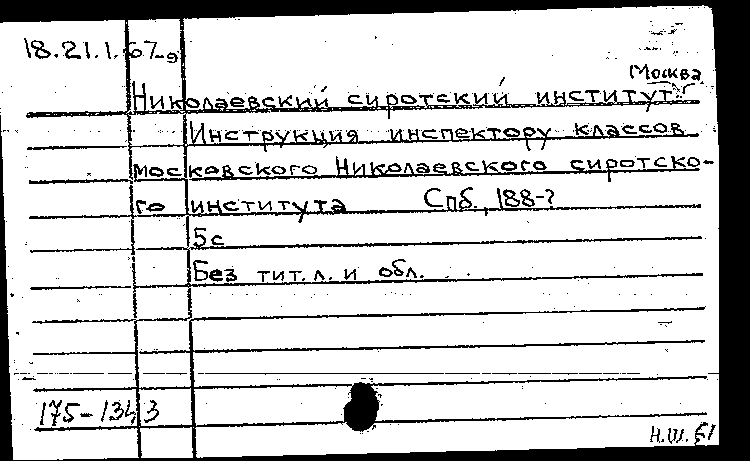 18.21.1.67-9
Москва
Николаевский сиротский институт
Инструкция инспектору классов
московского Николаевского сиротско-
го института Спб., 188-?
5с
Без тит. л. и обл.
175-134,3
Н.Ш. 61